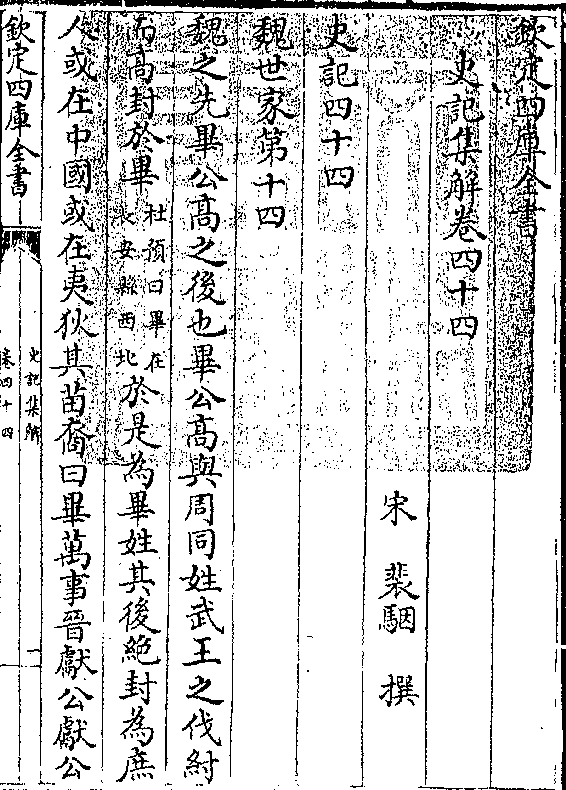 欽定四庫全書
史記集解卷四十四
宋 裴駰 撰
史記四十四
魏世家第十四
魏之先畢公髙之後也畢公髙與周同姓武王之伐紂
而髙封於畢杜預曰畢在長安縣西北於是為畢姓其後絶封為庶
人或在中國或在夷狄其苗裔曰畢萬事晉獻公獻公
欽定四庫全書
史記集解
卷四十四
一